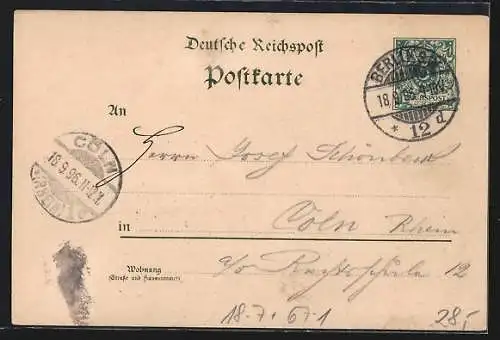 Deutsche Reichspost
Postkarte
BERLIN
18.9.96
REICHSPOST
* 12 d
An
Herrn Josef Schönbrod
CÖLN
18.9.96.11-12V.
in Cöln Rhein
Wohnung
(Straße und Hausnummer)
12
18.7. 67.1
28,-